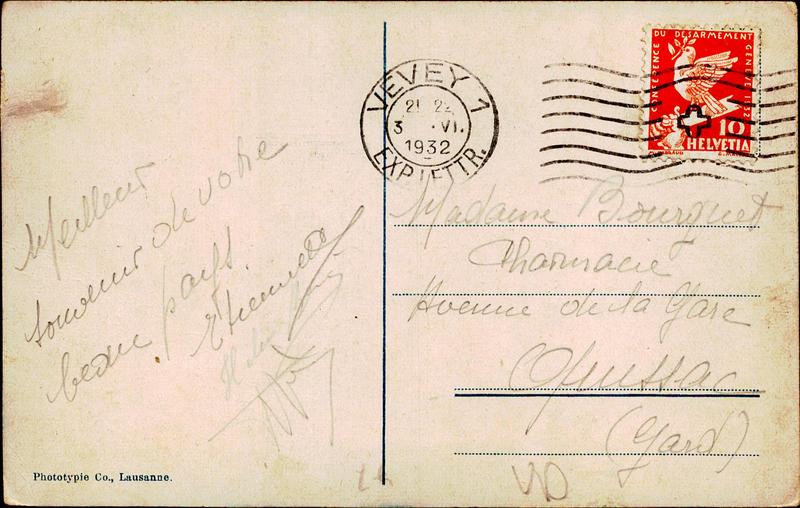 Meilleur
souvenir de votre
beau pays.
Etiennette
Phototypie Co., Lausanne.
VEVEY 1
3 . VI.
1932
EXP. LETTR.
CONFÉRENCE DU DÉSARMEMENT GENÈVE 1932
10
HELVETIA
Madame Bourguet
Pharmacie
Avenue de la Gare
(Gard)